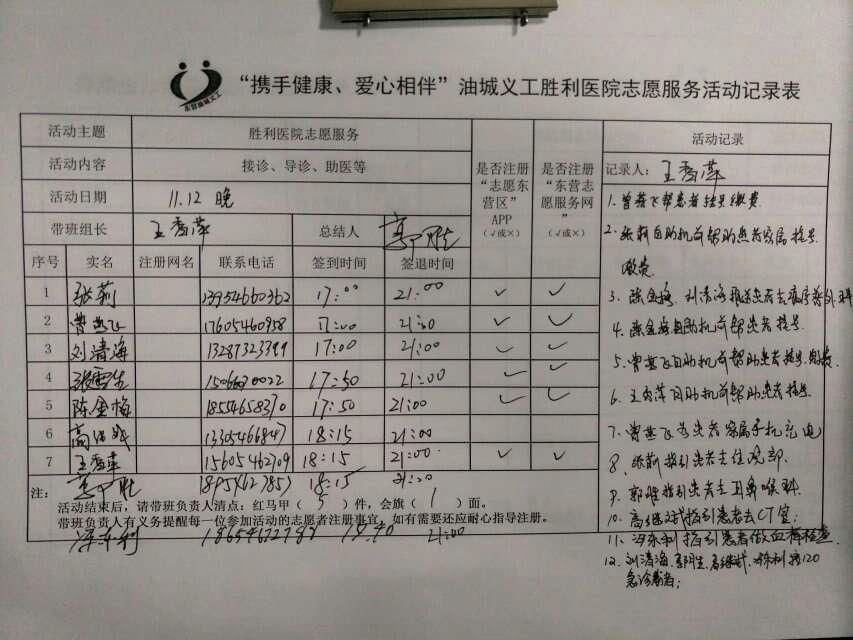 东营油城义工
“携手健康、爱心相伴”油城义工胜利医院志愿服务活动记录表
活动主题 胜利医院志愿服务
活动内容 接诊、导诊、助医等
活动日期 11.12 晚
带班组长 王秀萍 总结人
是否注册“志愿东营区”APP（√或×）
是否注册“东营志愿服务网”（√或×）
活动记录
记录人：王秀萍
序号 实名 注册网名 联系电话 签到时间 签退时间
1 张莉 13954660362 17:00 21:00 ✓ ✓
2 曾燕飞 17605460958 17:00 21:00 ✓ ✓
3 刘清海 13287323399 17:00 21:00 ✓ ✓
4 17:50 21:00 ✓ ✓
5 陈金梅 17:50 21:00 ✓ ✓
6 13305466847 18:15 21:00
7 王秀萍 15605462709 18:15 21:00 ✓ ✓
18:15 21:00
注：
活动结束后，请带班负责人清点：红马甲（ 5 ）件，会旗（ 1 ）面。
带班负责人有义务提醒每一位参加活动的志愿者注册事宜，如有需要还应耐心指导注册。
18:40 21:00
1. 曾燕飞帮患者挂号缴费
2. 张莉自助机前帮助患者家属挂号
缴费
3. 陈金梅、刘清海推送患者去
4. 陈金梅自助机前帮患者挂号
5. 曾燕飞自助机前帮助患者挂号、缴费
6. 王秀萍自助机前帮助患者挂号
7. 曾燕飞为患者家属手机充电
8. 张莉指引患者去住院部
9. 指引患者去耳鼻喉科
10. 指引患者去CT室；
11. 指引患者做血样检查
12. 刘清海、 120
急诊患者；